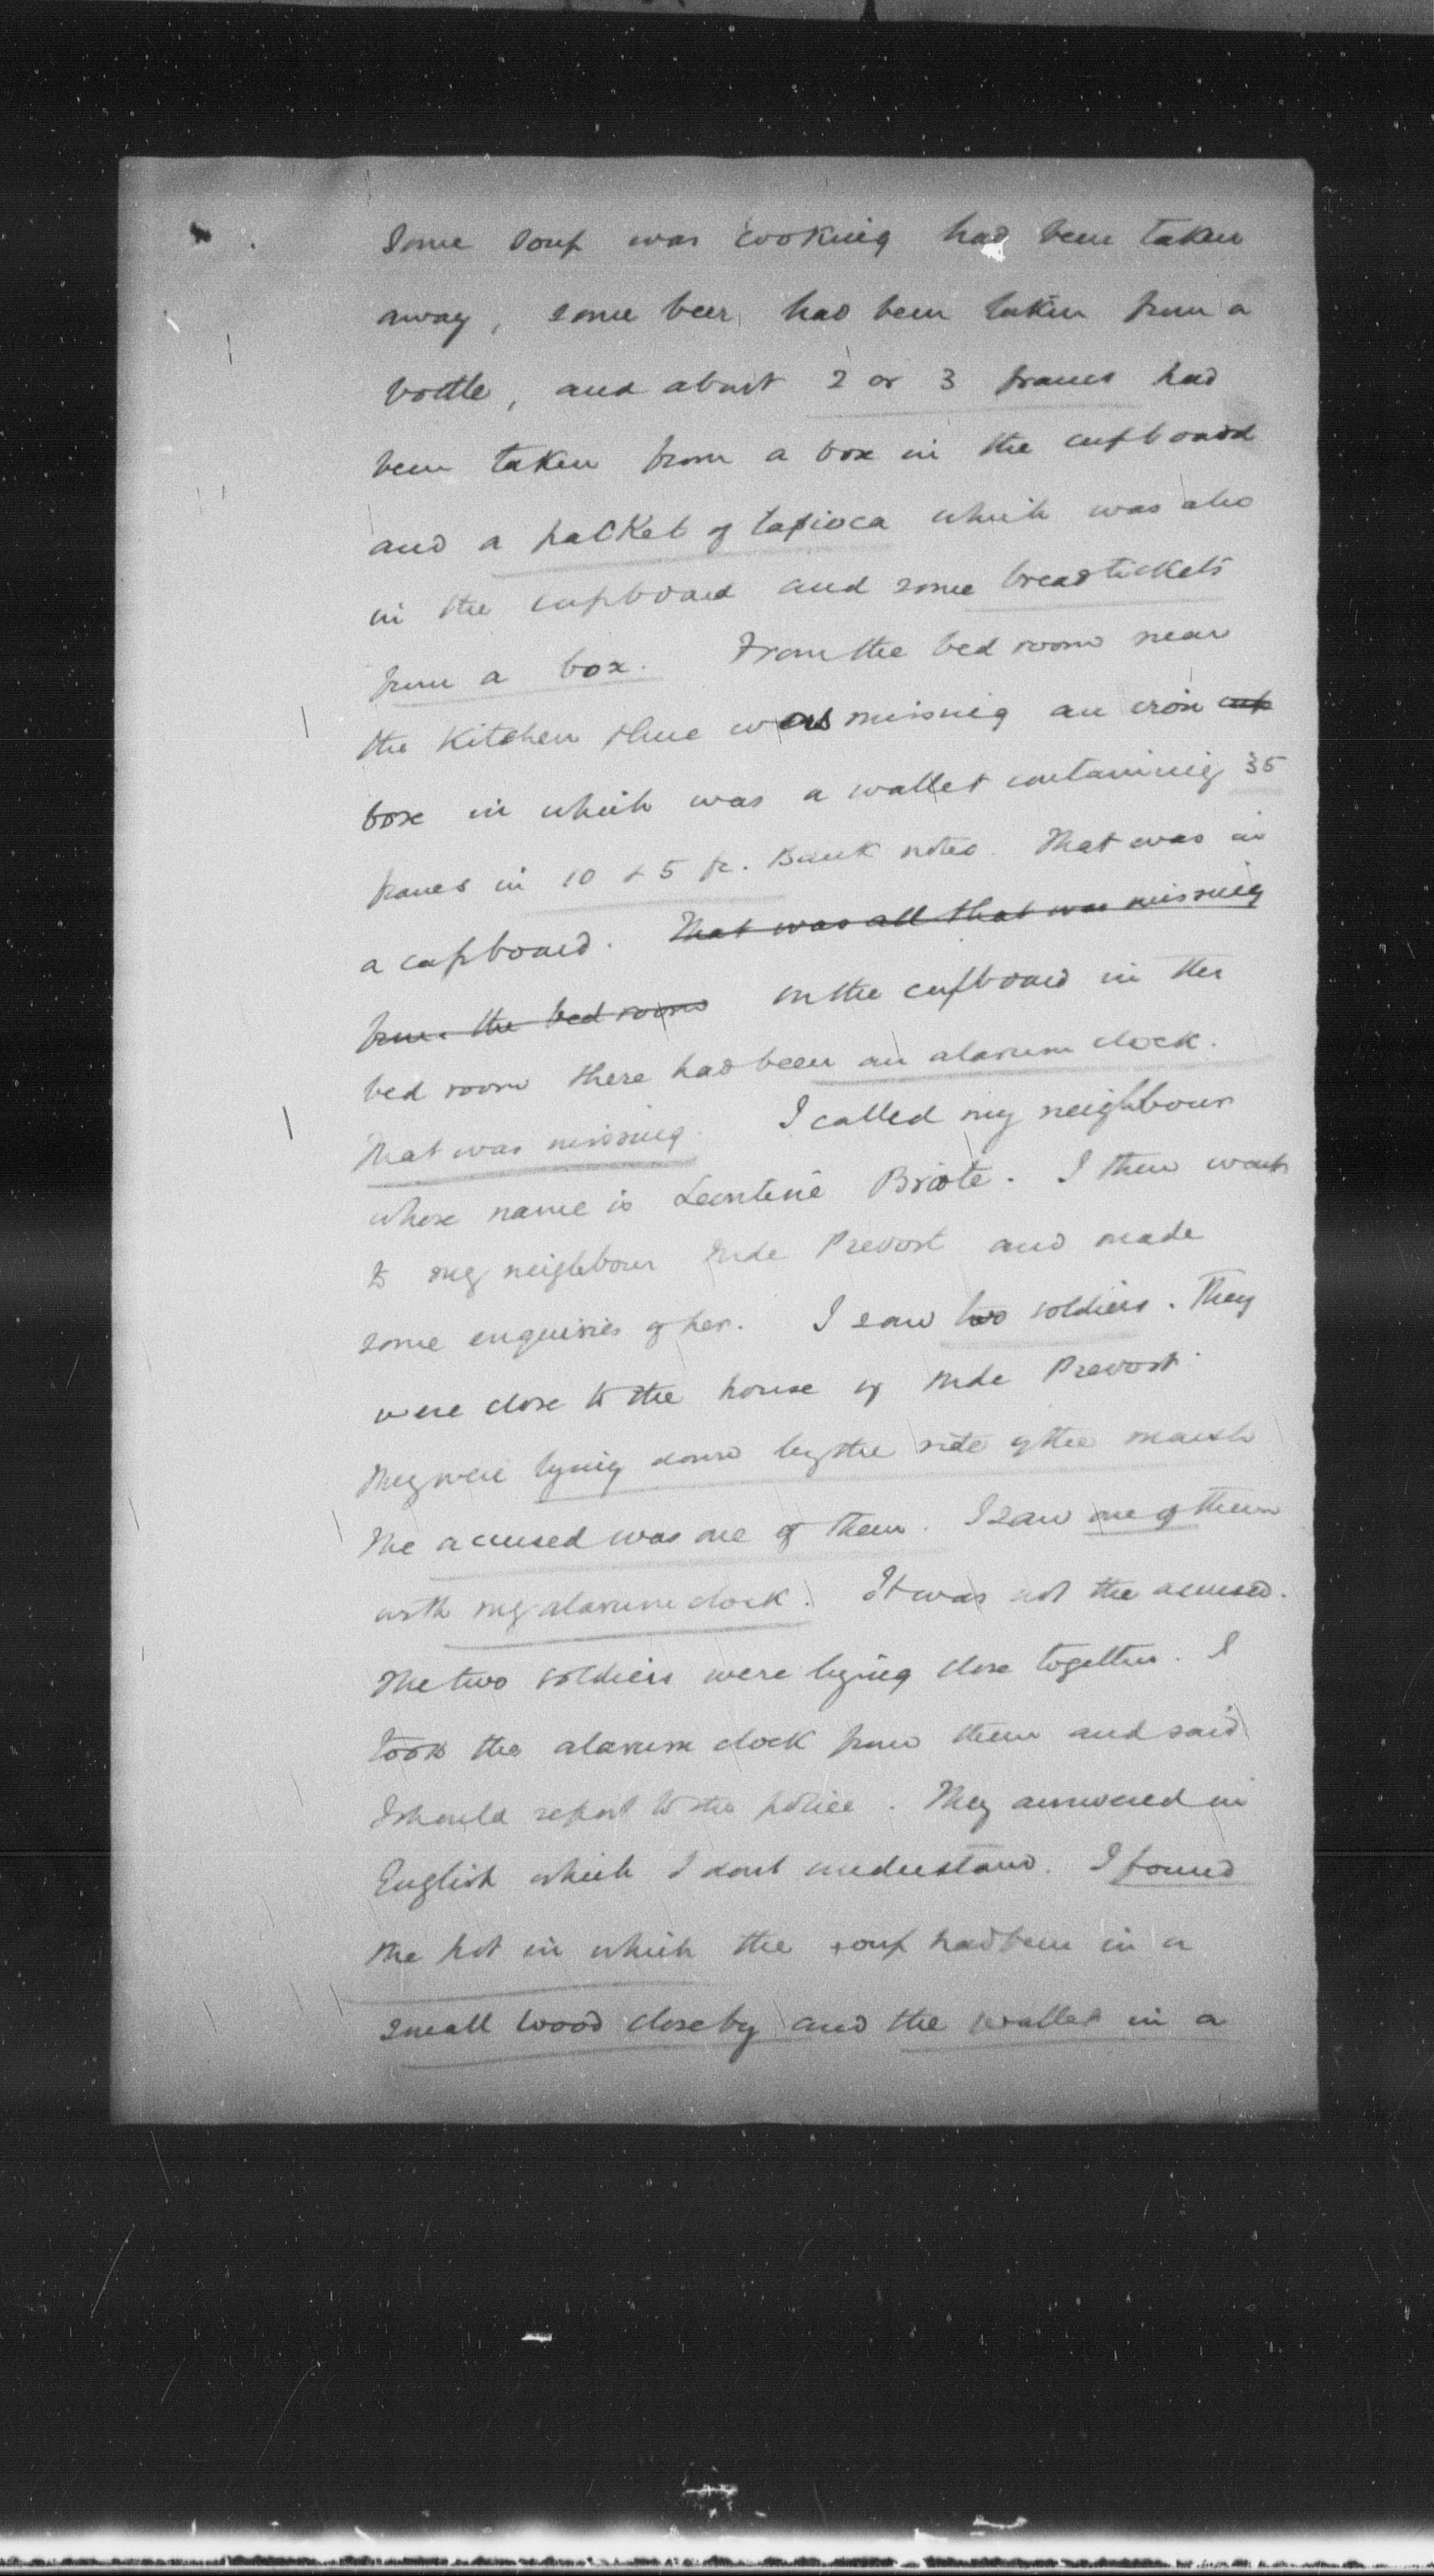 Some soup was cooking had been taken
away, some beer had been taken from a
bottle, and about 2 or 3 francs had
been taken from a box in the cupboard
and a packet of tapioca which was also
in the cupboard and some bread tickets
from a box. From the bed room near
the kitchen there was missing an iron cup
box in which was a wallet containing 35
francs in 10 & 5 fr. Bank notes. That was in
a cupboard. That was all that was missing
from the bed room On the cupboard in the
bed room there had been an alarum clock.
That was missing. I called my neighbour
whose name is Leontine Briote. I then went
to my neighbour Mde Prevost and made
some enquiries of her. I saw two soldiers. They
were close to the house of Mde Prevost.
They were lying down by the side of the marsh
The accused was one of them. I saw one of them
with my alarum clock. It was not the accused.
The two soldiers were lying close together. I
took the alarum clock from them and said
I should report to the police. They answered in
English which I dont understand. I found
the pot in which the soup had been in a
small wood close by and the wallet in a